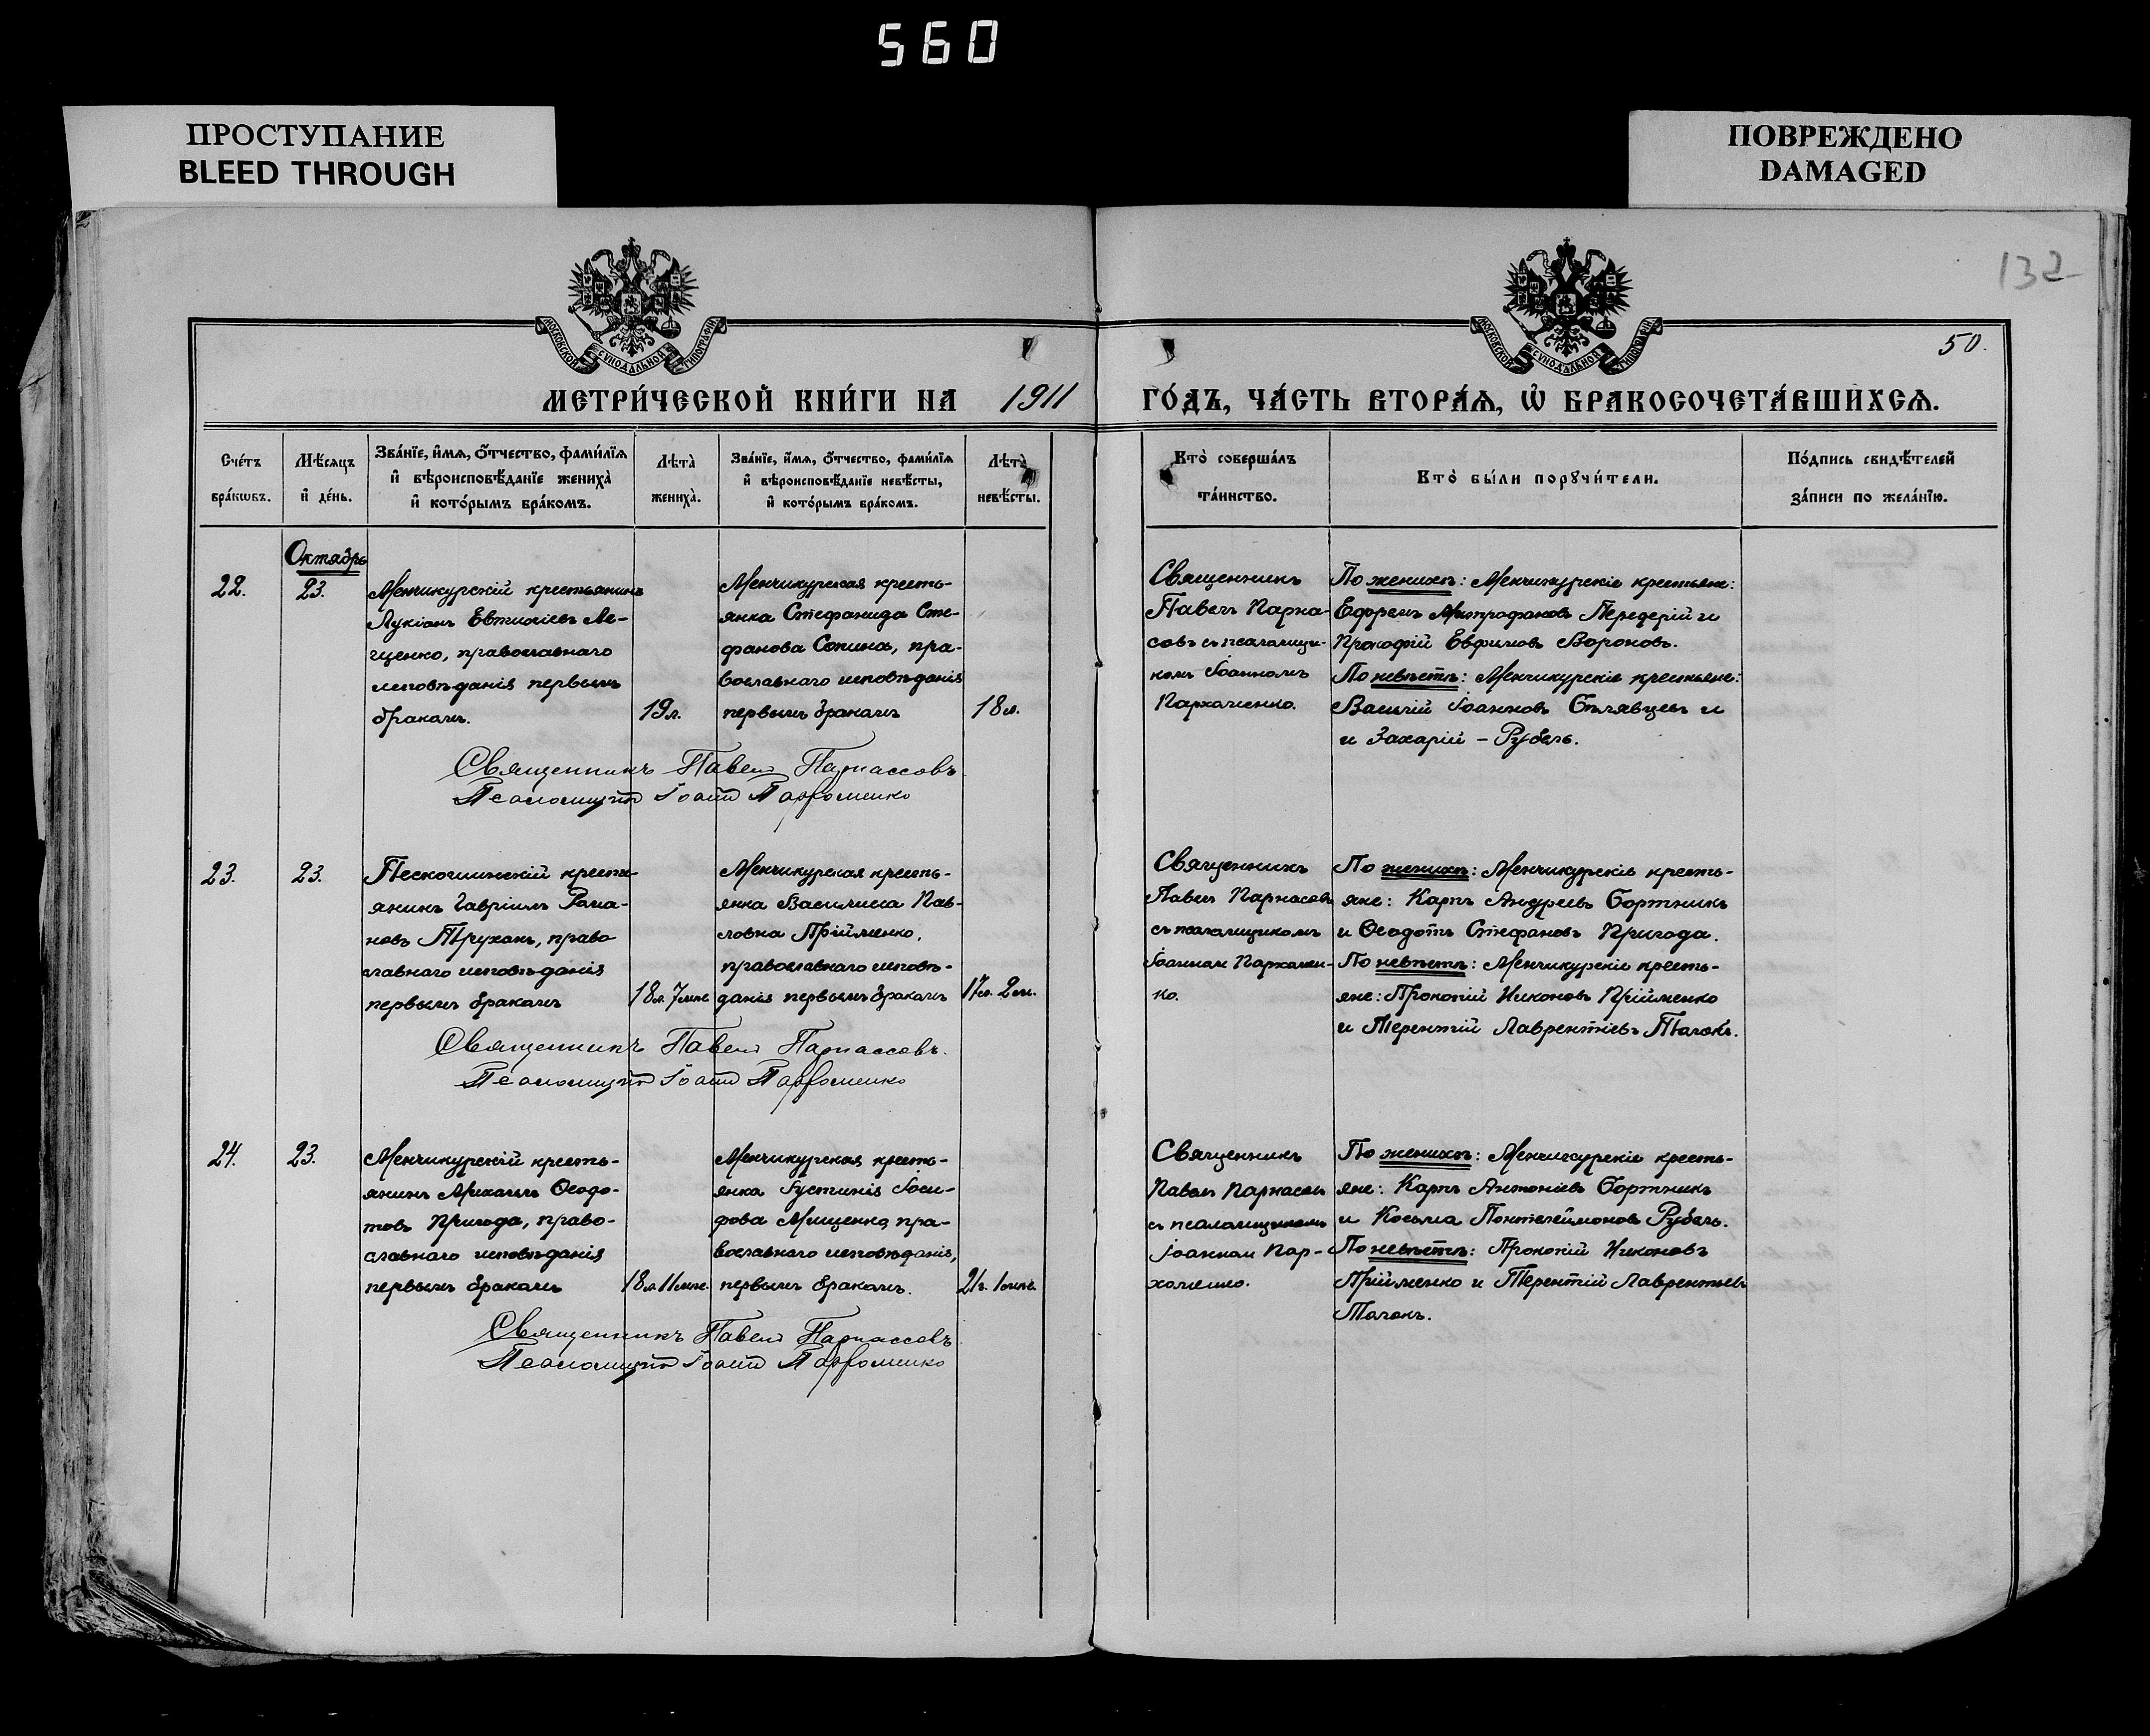 560
ПРОСТУПАНИЕ
BLEED THROUGH
ПОВРЕЖДЕНО
DAMAGED
132
50.
МОСКОВСКОЙ СѴНОДАЛЬНОЙ ТИПОГРАФІИ
МОСКОВСКОЙ СѴНОДАЛЬНОЙ ТИПОГРАФІИ
МЕТРИ́ЧЕСКОЙ КНИ́ГИ НА 1911 ГО́ДЪ, ЧА́СТЬ ВТОРА́Ѧ, Ѡ҆ БРАКОСОЧЕТА́ВШИХСѦ.
Сче́тъ бра́кѡвъ.
Мѣ́сѧцъ и҆ де́нь.
Зва́нїе, и҆́мѧ, ѻ҆́тчество, фами́лїѧ и҆ вѣроисповѣ́данїе жениха̀ и҆ кото́рымъ бра́комъ.
Лѣта̀ жениха̀.
Зва́нїе, и҆́мѧ, ѻ҆́тчество, фами́лїѧ и҆ вѣроисповѣ́данїе невѣ́сты, и҆ кото́рымъ бра́комъ.
Лѣта̀ невѣ́сты.
Кто̀ соверша́лъ та́инство.
Кто̀ бы́ли порꙋчи́тели.
По́дпись свидѣ́телей за́писи по жела́нїю.
Октябрь
22.
23.
Менчикурскій крестьянинъ
Лукіанъ Евтихіевъ Ле-
щенко, православнаго
исповѣданія первымъ
бракомъ.
19л.
Менчикурская кресть-
янка Стефанида Сте-
фанова Сопина, пра-
вославнаго исповѣданія
первымъ бракомъ
18л.
Священникъ
Павелъ Парна-
совъ съ псаломщи-
комъ Іоанномъ
Пархоменко.
По женихѣ: Менчикурскіе крестьяне:
Ефремъ Митрофановъ Передерій и
Прокофій Евфимовъ Вороновъ.
По невѣстѣ: Менчикурскіе крестьяне:
Василій Іоанновъ Бѣлявцевъ и
и Захарій - Рубель.
Священникъ Павелъ Парнассовъ
Псаломщикъ Іоаннъ Пархоменко
23.
23.
Пескошинскій кресть-
янинъ Гавріилъ Рома-
новъ Трухонъ, право
славнаго исповѣданія
первымъ бракомъ
18л. 7мпс.
Менчикурская кресть-
янка Василисса Пав-
ловна Прійменко,
православнаго исповѣ-
данія первымъ бракомъ
17л. 2м.
Священникъ
Павелъ Парнасовъ
съ псаломщикомъ
Іоанномъ Пархомен-
ко.
По женихѣ: Менчикурскіе кресть-
яне: Карпъ Андреевъ Бортникъ
и Ѳеодотъ Стефановъ Пригода.
По невѣстѣ: Менчикурскіе кресть-
яне: Прокопій Никоновъ Прійменко
и Терентій Лаврентіевъ Толокъ.
Священникъ Павелъ Парнассовъ.
Псаломщикъ Іоаннъ Пархоменко
24.
23.
Менчикурскій кресть-
янинъ Михаилъ Ѳеодо-
товъ Пригода, право-
славнаго исповѣданія
первымъ бракомъ
18л. 11мпс.
Менчикурская кресть-
янка Іустинія Іоси-
фова Мищенко, пра-
вославнаго исповѣданія,
первымъ бракомъ.
21г. 1мпс.
Священникъ
Павелъ Парнасовъ
съ псаломщикомъ
Іоанномъ Пар-
хоменко.
По женихѣ: Менчикурскіе кресть-
яне: Карпъ Антоніевъ Бортникъ
и Косьма Понтелеймоновъ Рубель.
По невѣстѣ: Прокопій Никоновъ
Прійменко и Терентій Лаврентьевъ
Толокъ.
Священникъ Павелъ Парнассовъ
Псаломщикъ Іоаннъ Пархоменко